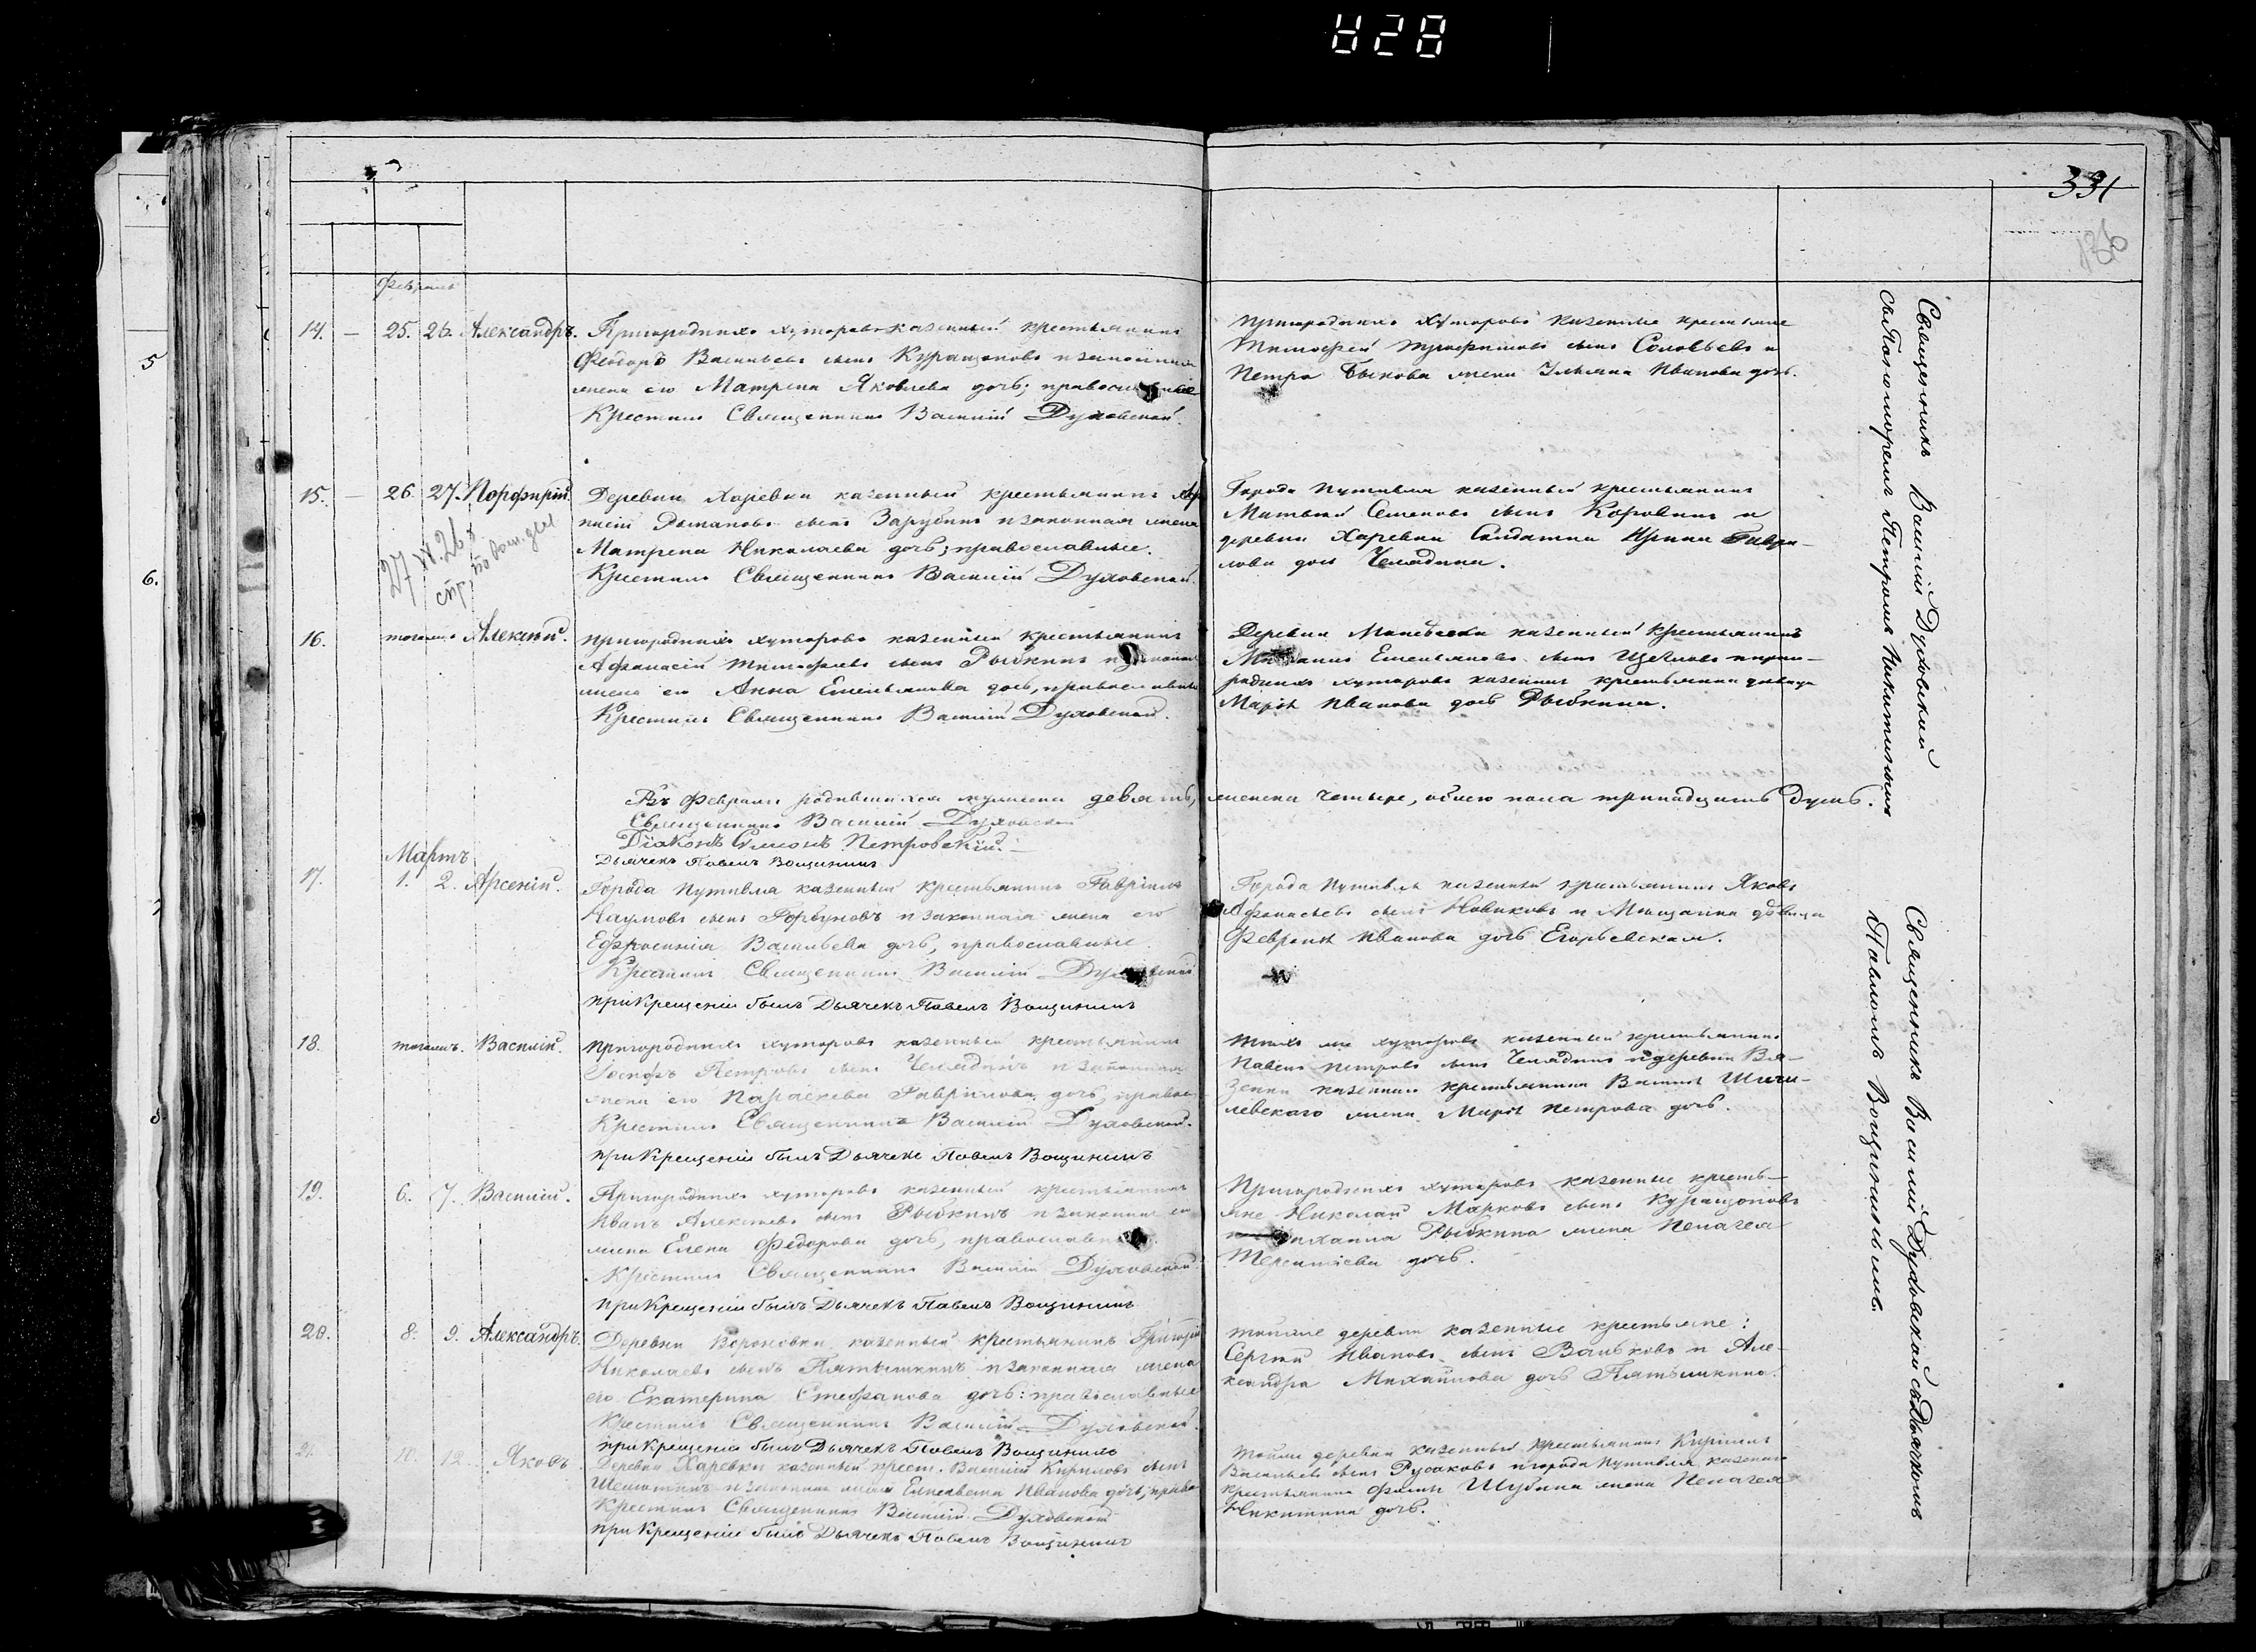 828
331
136
Февраль
14. — 25. 26. Александръ. Пригородныхъ хуторовъ казенный крестьянинъ
Феодоръ Васильевъ сынъ Куращоновъ и законная
жена его Матрена Яковлева дочь; православные
Крестилъ Священникъ Василій Духовской.
Пригородныхъ хуторовъ казенные крестьяне
Тимофей сынъ Соловьевъ и
Петра Быкова жена Ульяна Иванова дочь.
Священникъ Василій Духовской
съ Пономаремъ Петромъ Никитинымъ
15. — 26. 27. Порфирій. Деревни Харевки казенный крестьянинъ
Романовъ сынъ Зарубинъ и законная жена
Матрена Николаева дочь; православные.
Крестилъ Священникъ Василій Духовской.
Города Путивля казенный крестьянинъ
Матвей Семеновъ сынъ Коровинъ и
деревни Харевки Солдатка Ирина Гаври-
лова дочь Челядина.
16. тогожъ Алексій. Пригородныхъ хуторовъ казенный крестьянинъ
Афанасій Тимофеевъ сынъ Рыбкинъ и законная
жена его Анна Емельянова дочь, православные
Крестилъ Священникъ Василій Духовской.
Деревни казенный крестьянинъ
Емельяновъ сынъ Щегловъ и приго-
родныхъ хуторовъ казенного крестьянина девица
Марія Иванова дочь Рыбкина.
Въ Февралѣ родившихся мужеска девять, женска четыре, обоего пола тринадцать душъ.
Священникъ Василій Духовской
Діаконъ Симонъ Петровскій.
Дьячекъ Павелъ Вощининъ
Мартъ
17. 1. 2. Арсеній. Города Путивля казенный крестьянинъ Гавріилъ
Наумовъ сынъ Горбуновъ и законная жена его
Ефросинія Васильева дочь, православные.
Крестилъ Священникъ Василій Духовской
при Крещеніи былъ Дьячекъ Павелъ Вощининъ
Города Путивля казенный крестьянинъ Яковъ
Афанасьевъ сынъ Новиковъ и Мещанка дѣвица
Февронія Иванова дочь Егорьевская.
Священникъ Василій Духовской съ Дьячкомъ
Павломъ Вощининымъ.
18. тогожъ. Василій. Пригородныхъ хуторовъ казенный крестьянинъ
Іосифъ Петровъ сынъ Челядинъ и законная
жена его Параскева Гаврилова дочь, правос
Крестилъ Священникъ Василій Духовской.
при Крещеніи былъ Дьячекъ Павелъ Вощининъ
Тѣхъ же хуторовъ казенный крестьянинъ
Павелъ Петровъ сынъ Челядинъ и деревни Вя-
зенки казенного крестьянина Василія Шиги-
левскаго жена Марія Петрова дочь.
19. 6. 7. Василій. Пригородныхъ хуторовъ казенный крестьянинъ
Иванъ Алексѣевъ сынъ Рыбкинъ и законная его
жена Елена Федорова дочь, православные
Крестилъ Священникъ Василій Духовской
при Крещеніи былъ Дьячекъ Павелъ Вощининъ
Пригородныхъ хуторовъ казенные кресть-
яне Николай Марковъ сынъ Куращоновъ
Рыбкина жена Пелагея
Терентіева дочь.
20. 8. 9. Александръ. Деревни Вороновки казенный крестьянинъ Григорій
Николаевъ сынъ Пятышкинъ и законная жена
его Екатерина Стефанова дочь: православные
Крестилъ Священникъ Василій Духовской.
при Крещеніи былъ Дьячекъ Павелъ Вощининъ
тойже деревни казенные крестьяне:
Сергѣй Ивановъ сынъ Вальковъ и Але-
ксандра Михайлова дочь Пятышкина.
21. 10. 12. Яковъ. Деревни Харевки казенный крест. Василій Кириловъ сынъ
и законная жена Елисавета Иванова дочь; право
Крестилъ Священникъ Василій Духовской
при Крещеніи былъ Дьячекъ Павелъ Вощининъ
тойже деревни казенный крестьянинъ Кирилъ
Васильевъ сынъ Русаковъ и города Путивля казенного
крестьянина Шубина жена Пелагея
Никитина дочь.